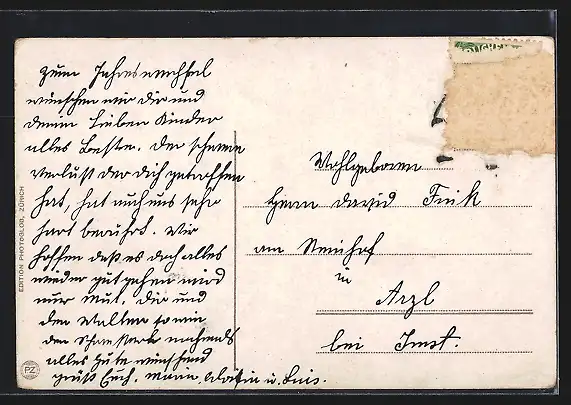 zum Jahreswechsel
wünschen wir dir und
deinen lieben Kinder
alles Beste. Der schwere
verlust der dich getroffen
hat, hat auch uns sehr
hart berührt. Wir
hoffen daß es doch alles
wieder gut gehen wird
nur Mut. Dir und
den
alles Gute wünschend
grüßt Euch, u.
Wohlgeboren
Herrn David Frik
am
in
Arzl
bei Imst.
EDITION PHOTOGLOB, ZÜRICH
PZ